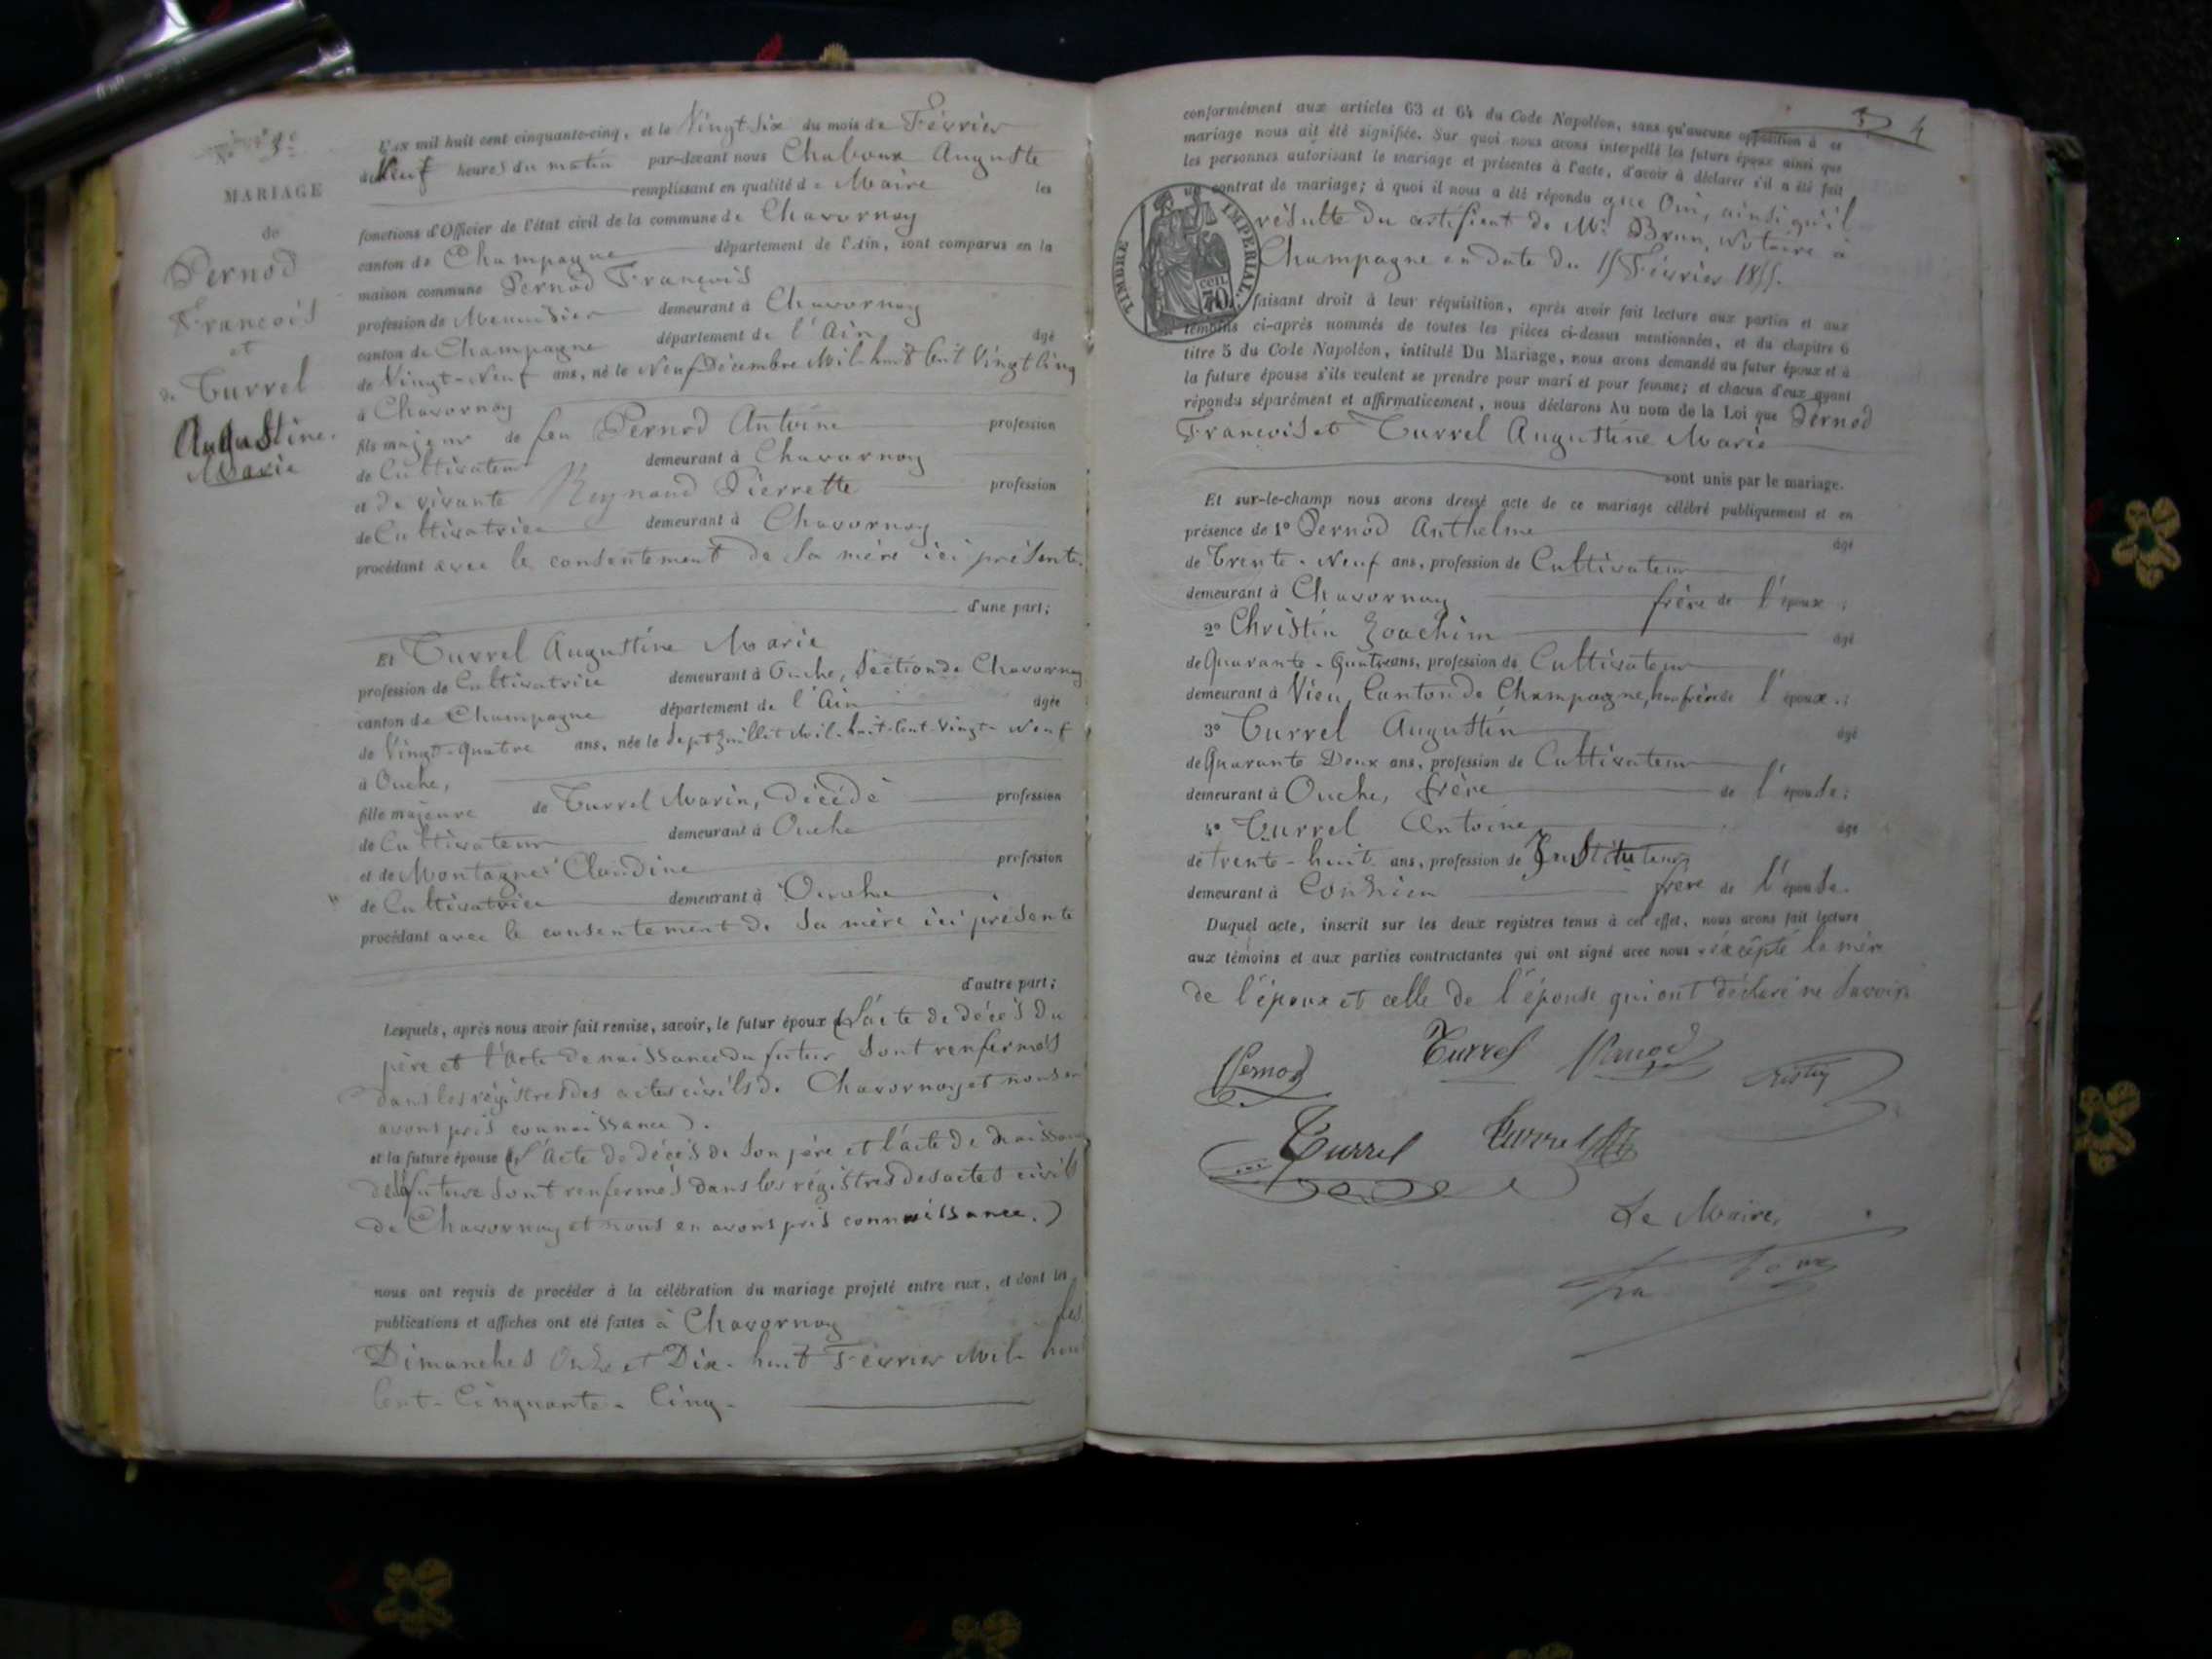 N° 3e
MARIAGE
de
Pernod
François
et
de Turrel
Augustine
Marie
L'an mil huit cent cinquante-cinq, et le Vingt Six du mois de Février
à Neuf heures du matin par-devant nous Chaboux Auguste
remplissant en qualité de Maire les
fonctions d'Officier de l'état civil de la commune de Chavornay
canton de Champagne département de l'Ain, sont comparus en la
maison commune Pernod François
profession de Menuisier demeurant à Chavornay
canton de Champagne département de l'Ain âgé
de Vingt-Neuf ans, né le Neuf Décembre Mil-huit Cent Vingt Cinq
à Chavornay
fils majeur de feu Pernod Antoine profession
de Cultivateur demeurant à Chavornay
et de vivante Reynaud Pierrette profession
de Cultivatrice demeurant à Chavornay
procédant avec le consentement de Sa mère ici présente.
d'une part;
Et Turrel Augustine Marie
profession de Cultivatrice demeurant à Ouche, Section de Chavornay
canton de Champagne département de l'Ain âgée
de Vingt-quatre ans, née le Sept Juillet Mil-huit-Cent-Vingt-Neuf
à Ouche,
fille majeure de Turrel Marin, Décédé profession
de Cultivateur demeurant à Ouche
et de Montagner Claudine profession
de Cultivatrice demeurant à Ouche
procédant avec le consentement de Sa mère ici présente
d'autre part;
Lesquels, après nous avoir fait remise, savoir, le futur époux (l'acte de décès du
père et l'Acte de naissance du futur Sont renfermés
dans les régistres des actes civils de Chavornay et nous en
avons pris connaissance).
et la future épouse (l'Acte de décès de Son père et l'acte de Naissance
de la future Sont renfermés dans les régistres des actes civils
de Chavornay et nous en avons pris connaissance.)
nous ont requis de procéder à la célébration du mariage projeté entre eux, et dont les
publications et affiches ont été faites à Chavornay les
Dimanches Onze et Dix-huit Février Mil-huit
Cent-Cinquante-Cinq.
4
conformément aux articles 63 et 64 du Code Napoléon, sans qu'aucune opposition à ce
mariage nous ait été signifiée. Sur quoi nous avons interpellé les futurs époux ainsi que
les personnes autorisant le mariage et présentes à l'acte, d'avoir à déclarer s'il a été fait
un contrat de mariage; à quoi il nous a été répondu que Oui, ainsi qu'il
résulte du certificat de Me Brun, Notaire à
Champagne en date du 15 Février 1855.
TIMBRE IMPERIAL.
CEN. 70
faisant droit à leur réquisition, après avoir fait lecture aux parties et aux
témoins ci-après nommés de toutes les pièces ci-dessus mentionnées, et du chapitre 6
titre 5 du Code Napoléon, intitulé Du Mariage, nous avons demandé au futur époux et à
la future épouse s'ils veulent se prendre pour mari et pour femme; et chacun d'eux ayant
répondu séparément et affirmativement, nous déclarons Au nom de la Loi que Pernod
François et Turrel Augustine Marie
sont unis par le mariage.
Et sur-le-champ nous avons dressé acte de ce mariage célébré publiquement et en
présence de 1° Pernod Anthelme âgé
de Trente-Neuf ans, profession de Cultivateur
demeurant à Chavornay frère de l'époux;
2° Christin Joachim âgé
de Quarante-Quatre ans, profession de Cultivateur
demeurant à Vieu, Canton de Champagne, beau frère de l'époux;
3° Turrel Augustin âgé
de Quarante Deux ans, profession de Cultivateur
demeurant à Ouche, frère de l'épouse;
4° Turrel Antoine âgé
de trente-huit ans, profession de Instituteur
demeurant à frère de l'épouse.
Duquel acte, inscrit sur les deux registres tenus à cet effet, nous avons fait lecture
aux témoins et aux parties contractantes qui ont signé avec nous excepté la mère
de l'époux et celle de l'épouse qui ont déclaré ne Savoir.
Pernod Turrel Pernod
Turrel Turrel
Le Maire,